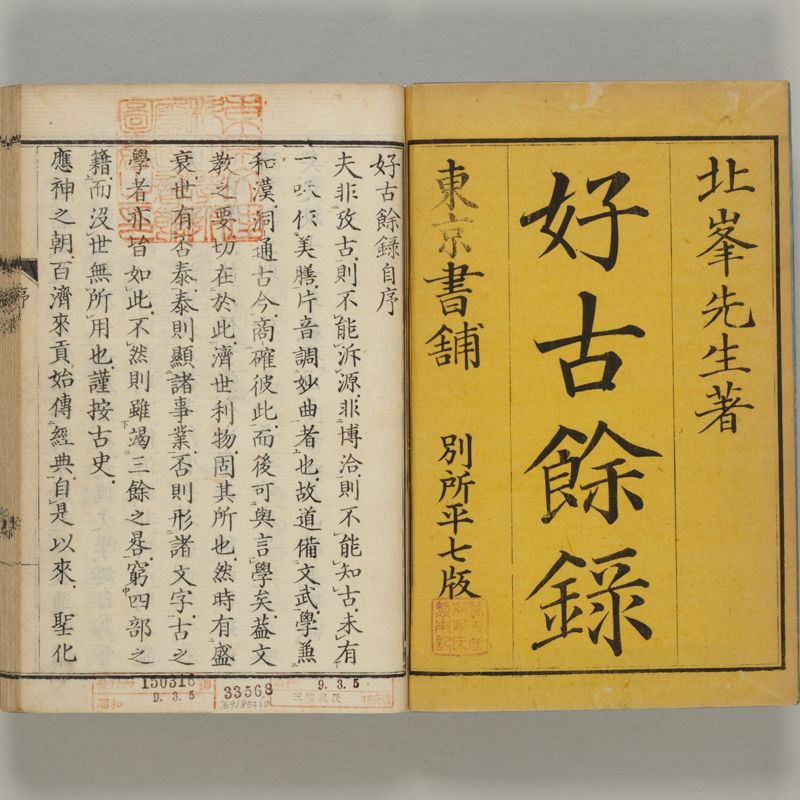 北峯先生著
好古餘録
東京書舗　別所平七版
好古餘録自序
夫非攷古則不能泝源非博洽則不能知古未有
一味作美膳片音調妙曲者也故道備文武學兼
和漢洞通古今商確彼此而後可與言學矣葢文
教之要切在於此濟世利物固其所也然時有盛
衰世有否泰泰則顯諸事業否則形諸文字古之
學者亦皆如此不然則雖竭三餘之晷窮四部之
籍而沒世無所用也謹按古史
應神之朝百濟來貢始傳經典自是以來　聖化
序
150316
9.3.5
昭和
33568
9.3.5